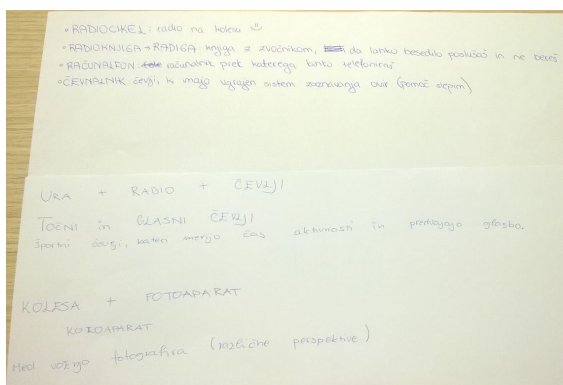 • RADIOCIKEL: radio na kolesu
• RADIOKNJIGA → RADIGA knjiga z zvočnikom, da lahko besedilo poslušaš in ne bereš
• RAČUNALFON: računalnik prek katerega lahko telefoniraš
• ČEVNALNIK čevlji, ki imajo vgrajen sistem zaznavanja ovir (pomoč slepim)
URA + RADIO + ČEVLJI
TOČNI in GLASNI ČEVLJI
Športni čevlji, kateri merijo čas aktivnosti in predvajajo glasbo.
KOLESA + FOTOAPARAT
KOROAPARAT
Med vožnjo fotografira (različne perspektive)